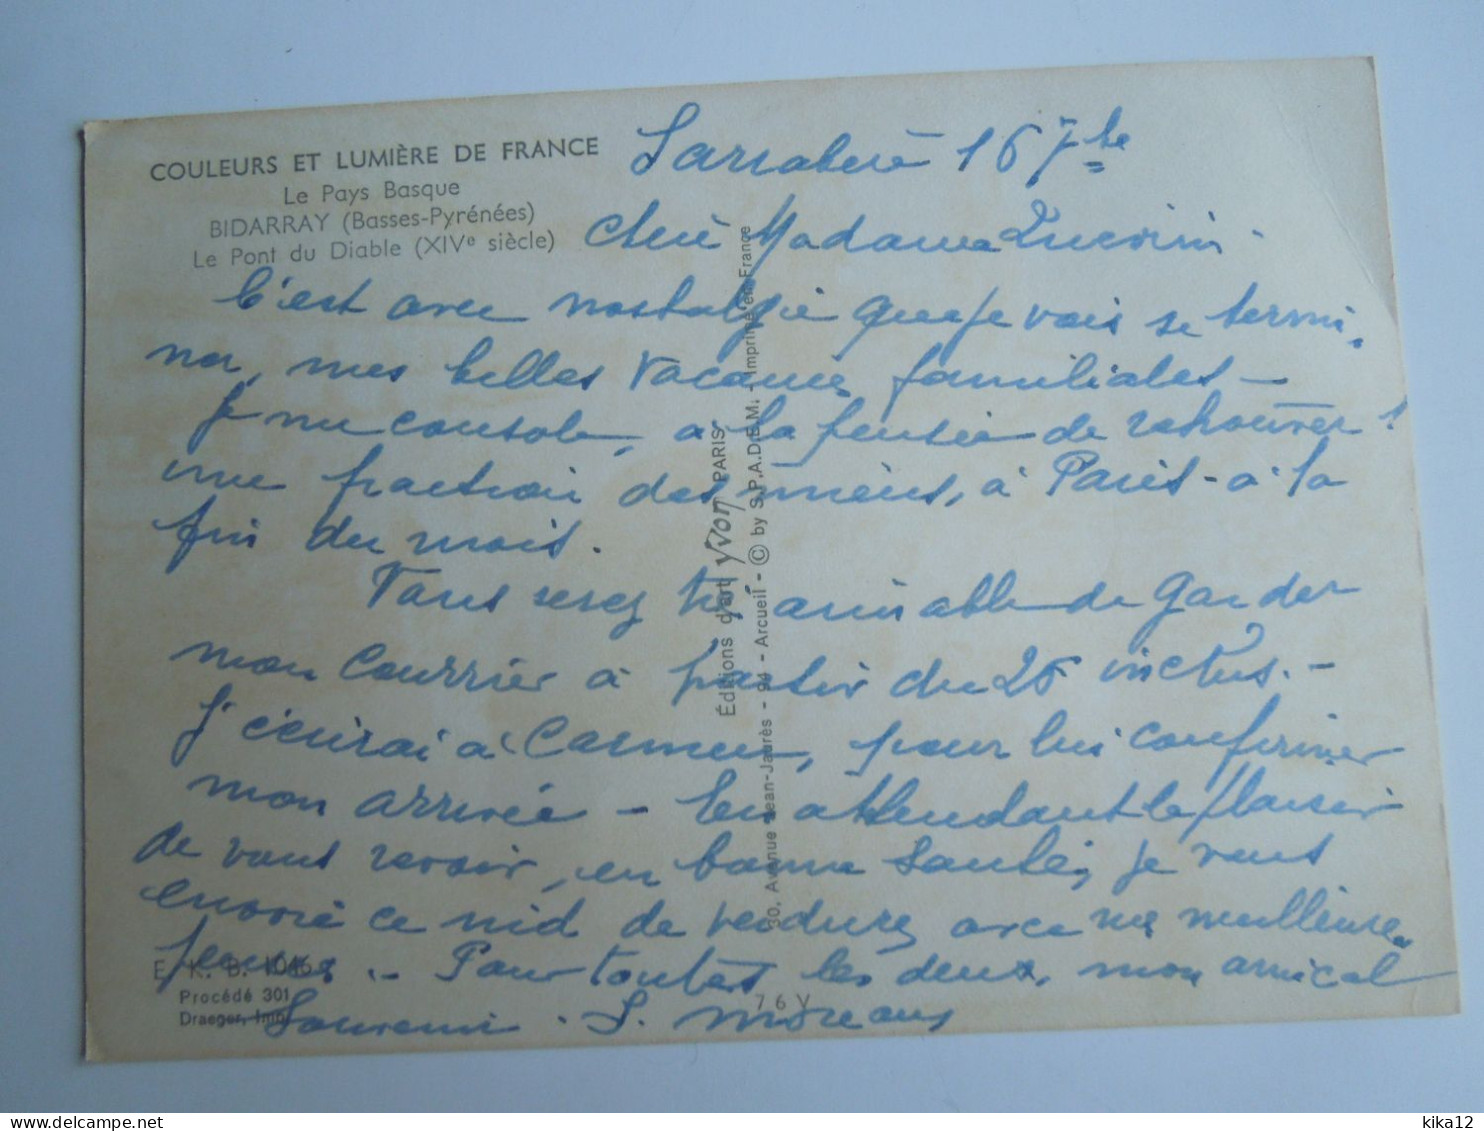 COULEURS ET LUMIÈRE DE FRANCE
Le Pays Basque
BIDARRAY (Basses-Pyrénées)
Le Pont du Diable (XIVe siècle)
16 7bre
Chère Madame
C'est avec nostalgie que je vais se termi
ner, mes belles vacances familiales -
Je me console, à la pensée de retrouver
une fraction des miens, à Paris - à la
fin du mois.
Vous serez très aimable de garder
mon courrier à partir du 25 inctus. -
J'écrirai à Carmen, pour lui confirmer
mon arrivée - En attendant le plaisir
de vous revoir, en bonne santé, je vous
envoie ce nid de verdure, avec mes meilleures
pensées. - Pour toutes les deux, mon amical
Souvenir. S. Moreaux
Éditions d'art yvon PARIS
30, Avenue Jean-Jaurès - 94 - Arcueil - © by S.P.A.D.E.M. - Imprimé en France
E. K. B. 1046
Procédé 301
Draeger, Imp.
7 6 V
delcampe.net
kika12